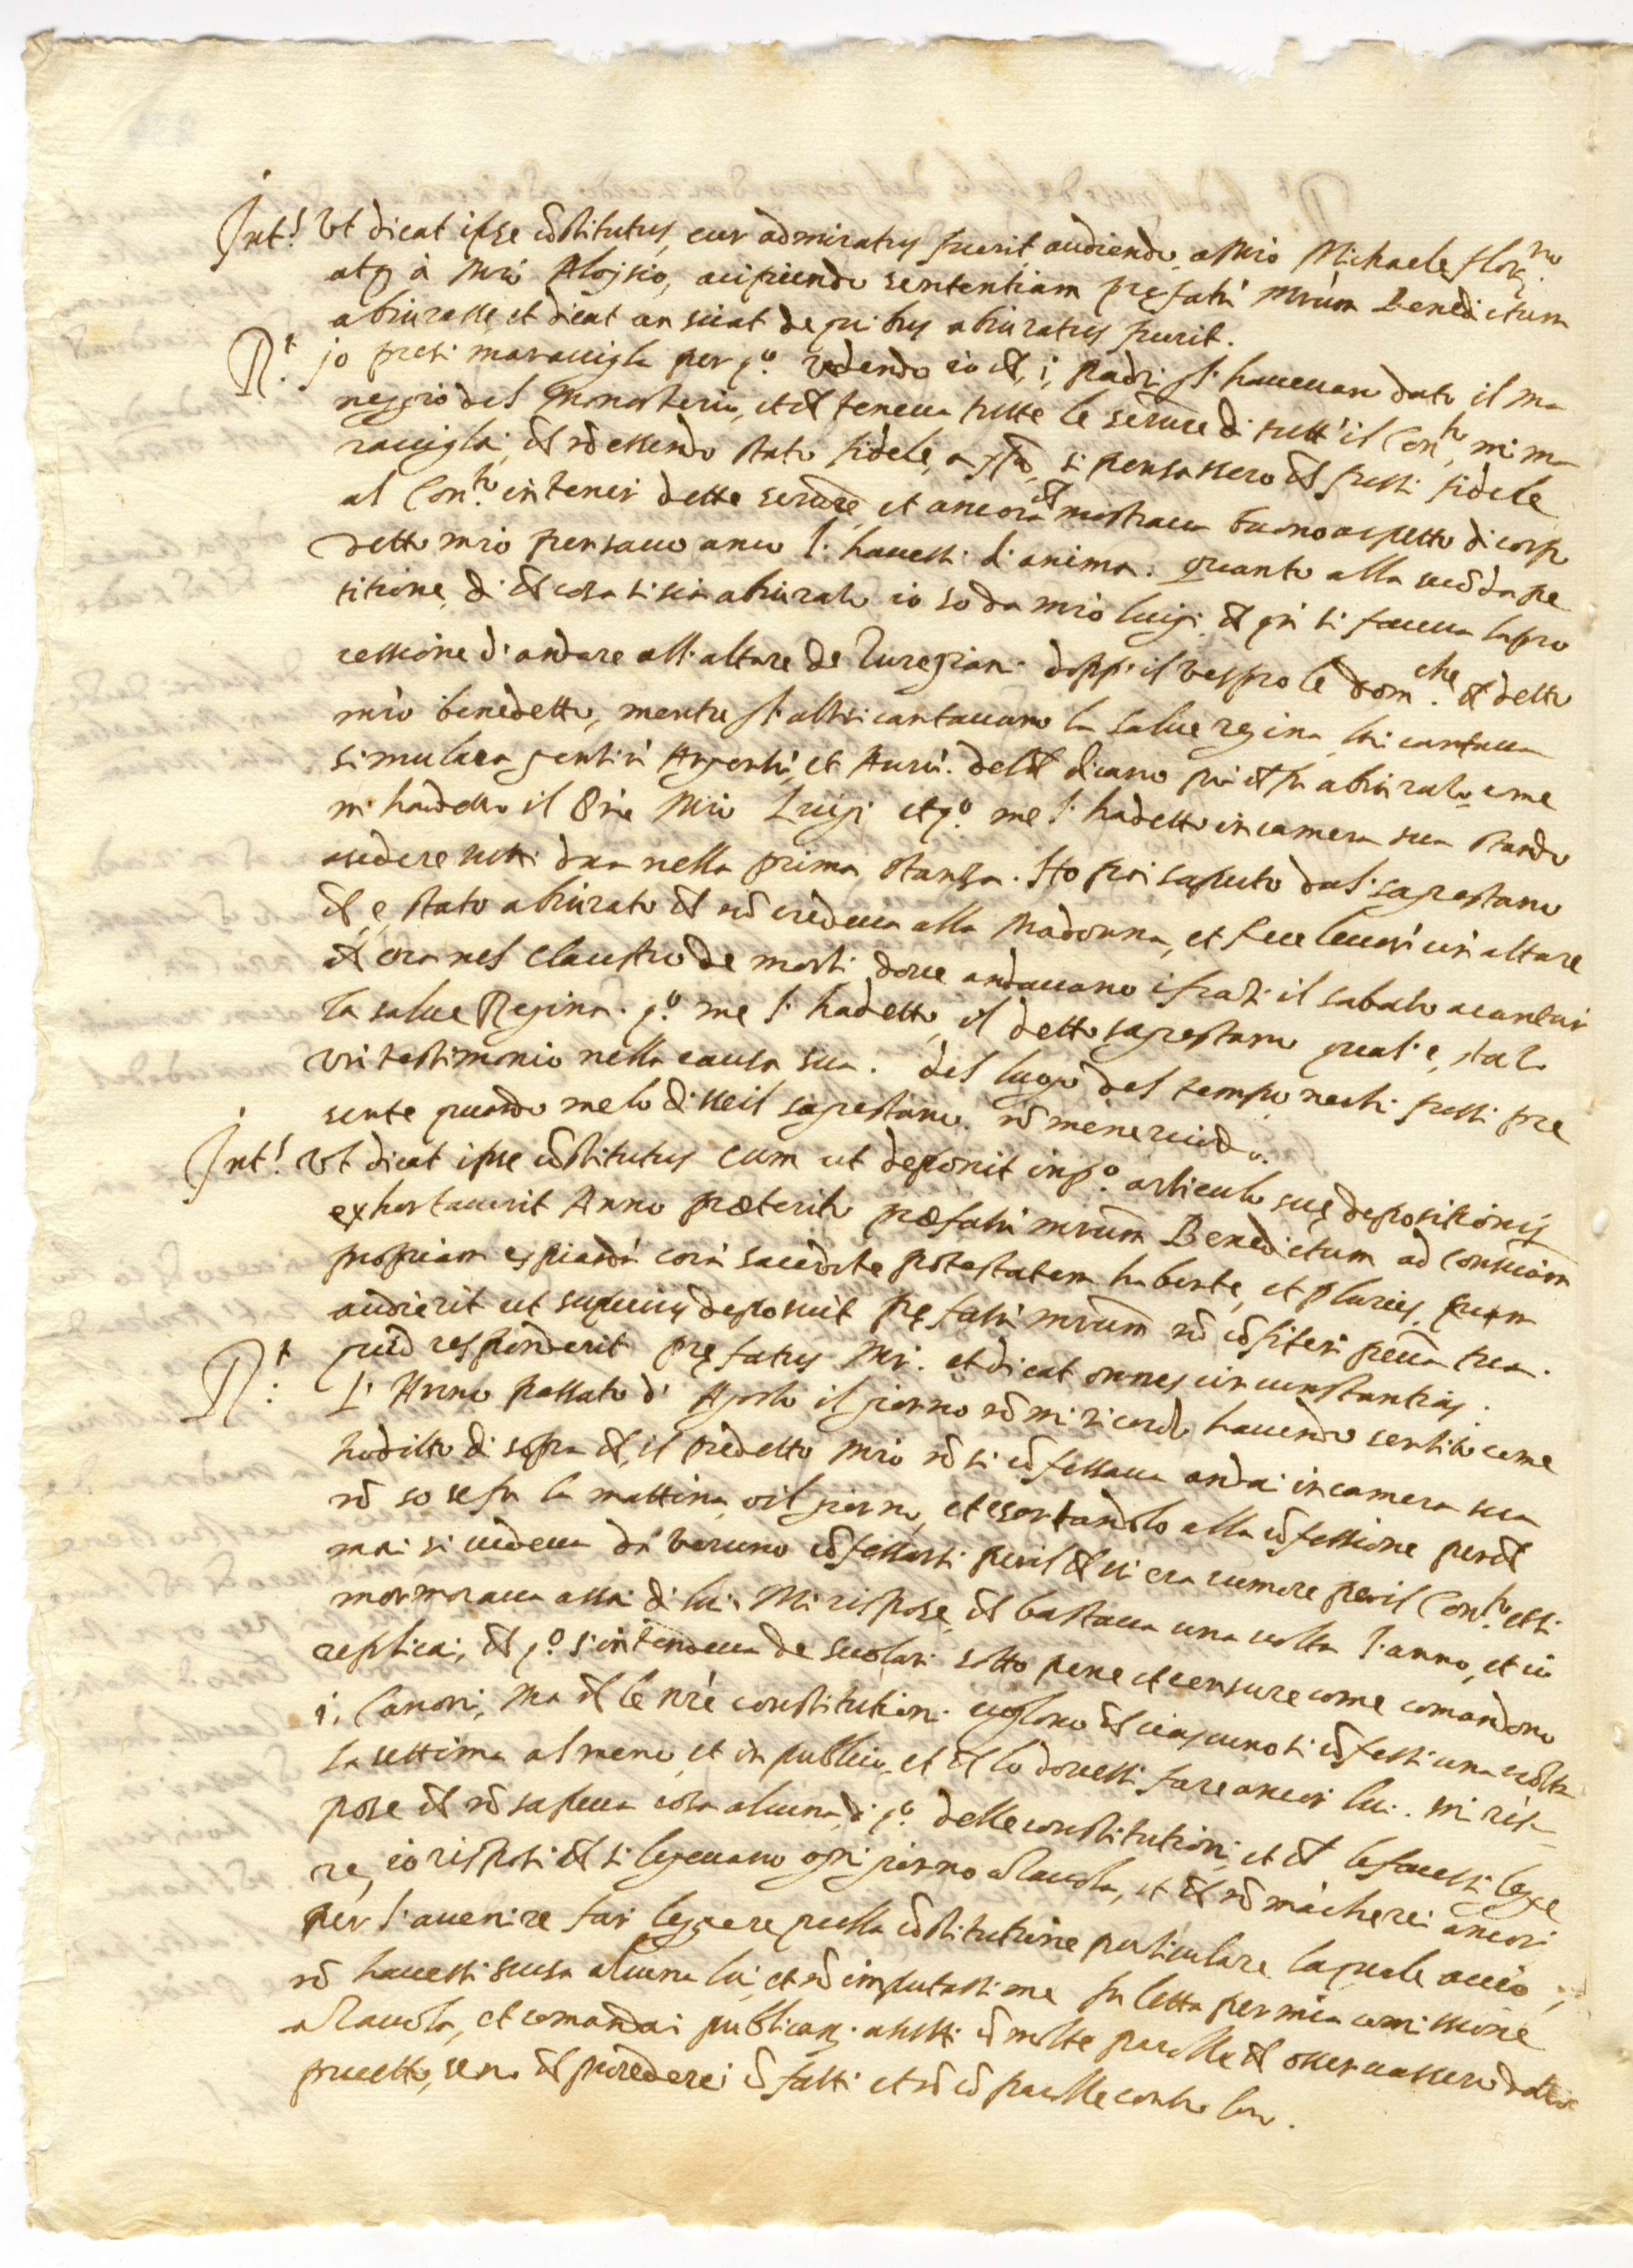 Int.s Vt dicat ipse cõstitutus, cur admiratus fuerit audiendo a Mro Michaele flor.no
atq à Mrõ Aloysio, accipiendo sententiam pręfatũ Mrum Benedictum
abiurasse, et dicat an sciat de quibus abiuratus fuerit.
R.t Jo presi marauiglia per q.o vedendo io ch, i, padri gli haueuan dato il ma
neggio del Monasterio, et ch teneua tutte le scritture di tutt'il Con.to mi ma
rauigliai, ch nõ essendo stato fidele, a si pensassero ch fussi fidele
al Con.to in tener dette scritture, et ancora ch mostraua buono aspetto di corpo
detto mrõ pensauo anco l'hauessi d'anima. Quanto alla secõda pe
titione, di ch cosa si sia abiurato io so da mrõ luigi, ch qñ si faceua la pro
cessione d'andare all'altare de doppo il vespro le dom.che ch detto
mrõ benedetto, mentre gl'altri cantauano la salue regina, lui cantaua
simulacra gentiũ Argentũ, et Aurũ. del ch dicano poi ch fu abiurato come
mi ha detto il Mrõ Luigi et q.o me l'ha detto in camera sua stando
a sedere tutti dua nella prima stanza. Ho poi saputo dal sagrestano
ch, e, stato abiurato ch nõ credeua alla Madonna, et fece leuar' un' altare
ch era nel Claustro de morti, doue andauano i frati il sabato a cantar
la salue Regina. q.o me l'ha detto, il detto sagrestano qual'e, stato
un testimonio nella causa sua. Del luogo del tempo ne chi fussi pre
sente quando me lo disse il sagrestano. nõ me ne ricordo.
Int.s Vt dicat ipse cõstitutus cum ut deponit in p.o articulo suę depositionis
exhortauerit Anno præterito præfatũ mrum Benedictum ad consciam
propriam expiandã corã sacerdote potestatem habente, et pluries
audierit ut superius deposuit pręfatũ mrum nõ cõfiteri peccata sua.
quid responderit pręfatus Mr. et dicat omnes circunstantias.
R.t L'Anno passato d'Agosto il giorno nõ mi ricordo hauendo sentito come
ho ditto di sopra ch, il predetto mrõ nõ si cõfessaua andai in camera sua
nõ so se fu la mattina, o il giorno, et esortandolo alla cõfessione perch
mai si uedeua da veruno cõfessarsi peril ch ui era rumore peril Con.to et si
mormoraua assai di lui. Mi rispose, ch bastaua una uolta l'anno, et io
replicai, ch q.o s'intendeua de secolari sotto pene et censure come comandono
i, Canoni, Ma ch le nrẽ constitutioni uogliono ch ciascuno si cõfessi una uolta
la settima almeno, et in publico, et ch lo douessi fare ancor lui. Mi ris-
pose ch nõ sapeua cosa alcuna di q.o delle constitutioni, et ch le facessi legge
re, io risposi ch si legeuano ogni giorno a tauola, et ch nõ mãcherei ancor
per l'auenire far leggere quella cõstitutione particulare laquale acciò
nõ hauessi scusa alcuna lui, et nõ imputassi me fu letta per mia comissione
a tauola, et comandai publicam. a tutti cõ molte parolle ch osseruassero detto
precetto, se no ch procederei cõ fatti et nõ cõ parolle contro loro.